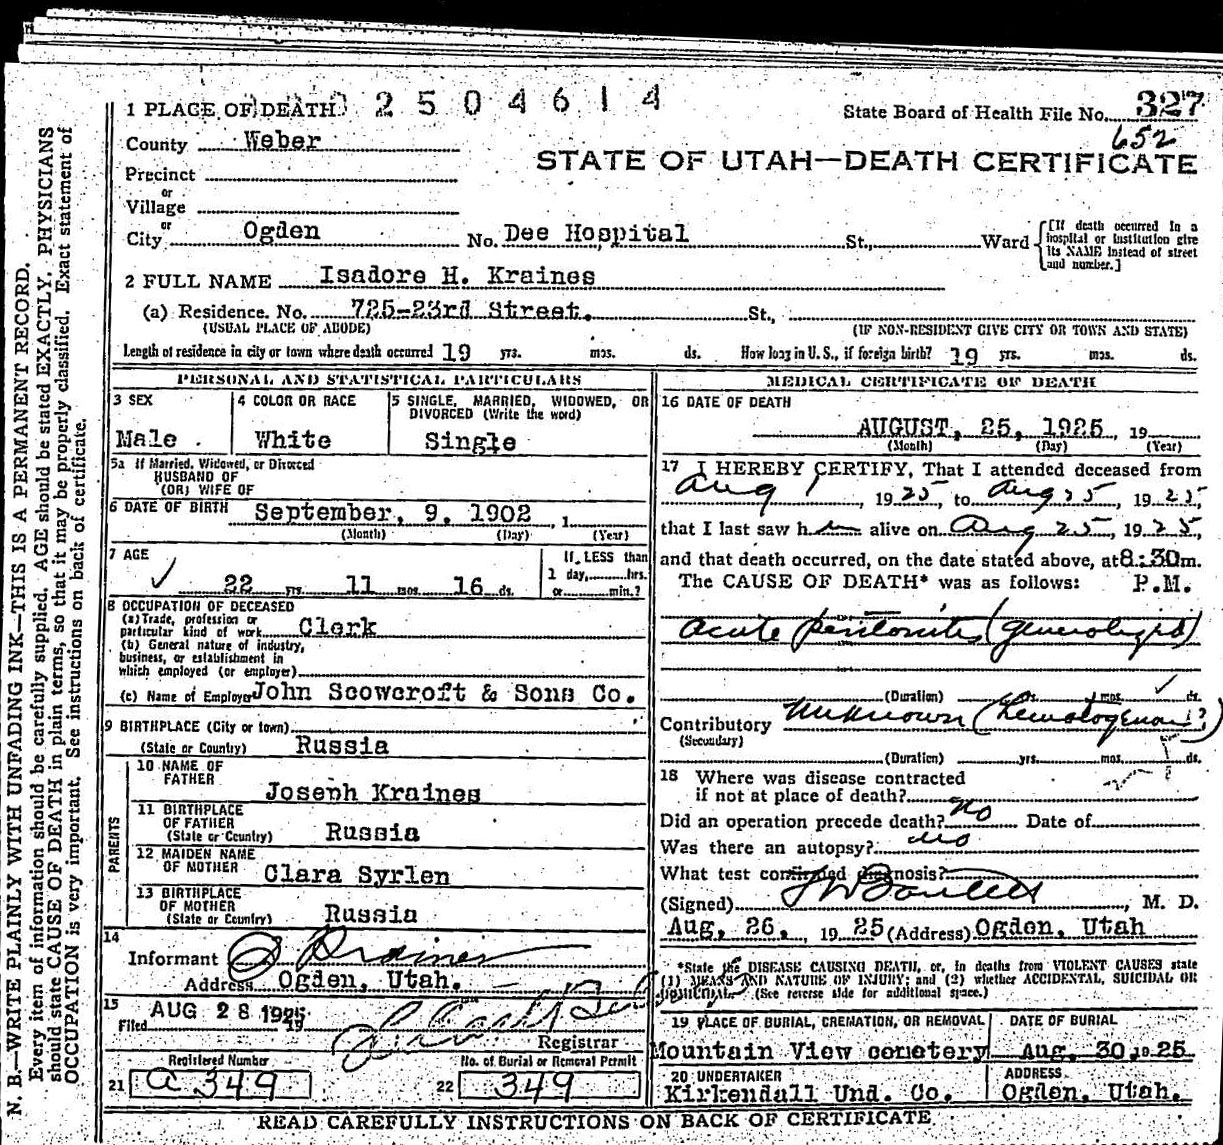 1 PLACE OF DEATH 2504614
State Board of Health File No. 327
652
County Weber
STATE OF UTAH—DEATH CERTIFICATE
Precinct
or
Village
or
City Ogden No. Dee Hospital St., Ward
[If death occurred in a hospital or institution give its NAME instead of street and number.]
2 FULL NAME Isadore H. Kraines
(a) Residence. No. 725-23rd Street. St.,
(USUAL PLACE OF ABODE) (IF NON-RESIDENT GIVE CITY OR TOWN AND STATE)
Length of residence in city or town where death occurred 19 yrs. mos. ds. How long in U. S., if foreign birth? 19 yrs. mos. ds.
PERSONAL AND STATISTICAL PARTICULARS
3 SEX
Male
4 COLOR OR RACE
White
5 SINGLE, MARRIED, WIDOWED, OR
DIVORCED (Write the word)
Single
5a If Married, Widowed, or Divorced
HUSBAND OF
(OR) WIFE OF
6 DATE OF BIRTH September, 9, 1902, 1
(Month) (Day) (Year)
7 AGE
22 yrs 11 mos 16 ds.
If LESS than
1 day, hrs.
or min.?
8 OCCUPATION OF DECEASED
(a) Trade, profession or
particular kind of work Clerk
(b) General nature of industry,
business, or establishment in
which employed (or employer)
(c) Name of Employer John Scowcroft & Sons Co.
9 BIRTHPLACE (City or town)
(State or Country) Russia
PARENTS
10 NAME OF
FATHER
Joseph Kraines
11 BIRTHPLACE
OF FATHER
(State or Country) Russia
12 MAIDEN NAME
OF MOTHER Clara Syrlen
13 BIRTHPLACE
OF MOTHER
(State or Country) Russia
14
Informant Kraines
Address Ogden, Utah.
15
Filed AUG 28 1925 19
Registrar
Registered Number
21 a 349
No. of Burial or Removal Permit
22 349
MEDICAL CERTIFICATE OF DEATH
16 DATE OF DEATH
AUGUST, 25, 1925, 19
(Month) (Day) (Year)
17 I HEREBY CERTIFY, That I attended deceased from
Aug 1, 1925 to Aug 25, 1925,
that I last saw him alive on Aug 25, 1925,
and that death occurred, on the date stated above, at 8:30m.
The CAUSE OF DEATH* was as follows: P.M.
Acute peritonitis (generalized)
(Duration) yrs. mos. ds.
Contributory Unknown (hematogenous?)
(Secondary)
(Duration) yrs. mos. ds.
18 Where was disease contracted
if not at place of death?
Did an operation precede death? no Date of
Was there an autopsy? no
What test confirmed diagnosis?
(Signed), M. D.
Aug, 26, 1925 (Address) Ogden, Utah
*State the DISEASE CAUSING DEATH, or, in deaths from VIOLENT CAUSES state
(1) MEANS AND NATURE OF INJURY; and (2) whether ACCIDENTAL, SUICIDAL OR
HOMICIDAL. (See reverse side for additional space.)
19 PLACE OF BURIAL, CREMATION, OR REMOVAL
Mountain View cemetery
DATE OF BURIAL
Aug, 30, 1925
20 UNDERTAKER
Kirkendall Und. Co.
ADDRESS
Ogden, Utah.
READ CAREFULLY INSTRUCTIONS ON BACK OF CERTIFICATE
N. B.—WRITE PLAINLY WITH UNFADING INK—THIS IS A PERMANENT RECORD.
Every item of information should be carefully supplied. AGE should be stated EXACTLY. PHYSICIANS
should state CAUSE OF DEATH in plain terms, so that it may be properly classified. Exact statement of
OCCUPATION is very important. See instructions on back of certificate.